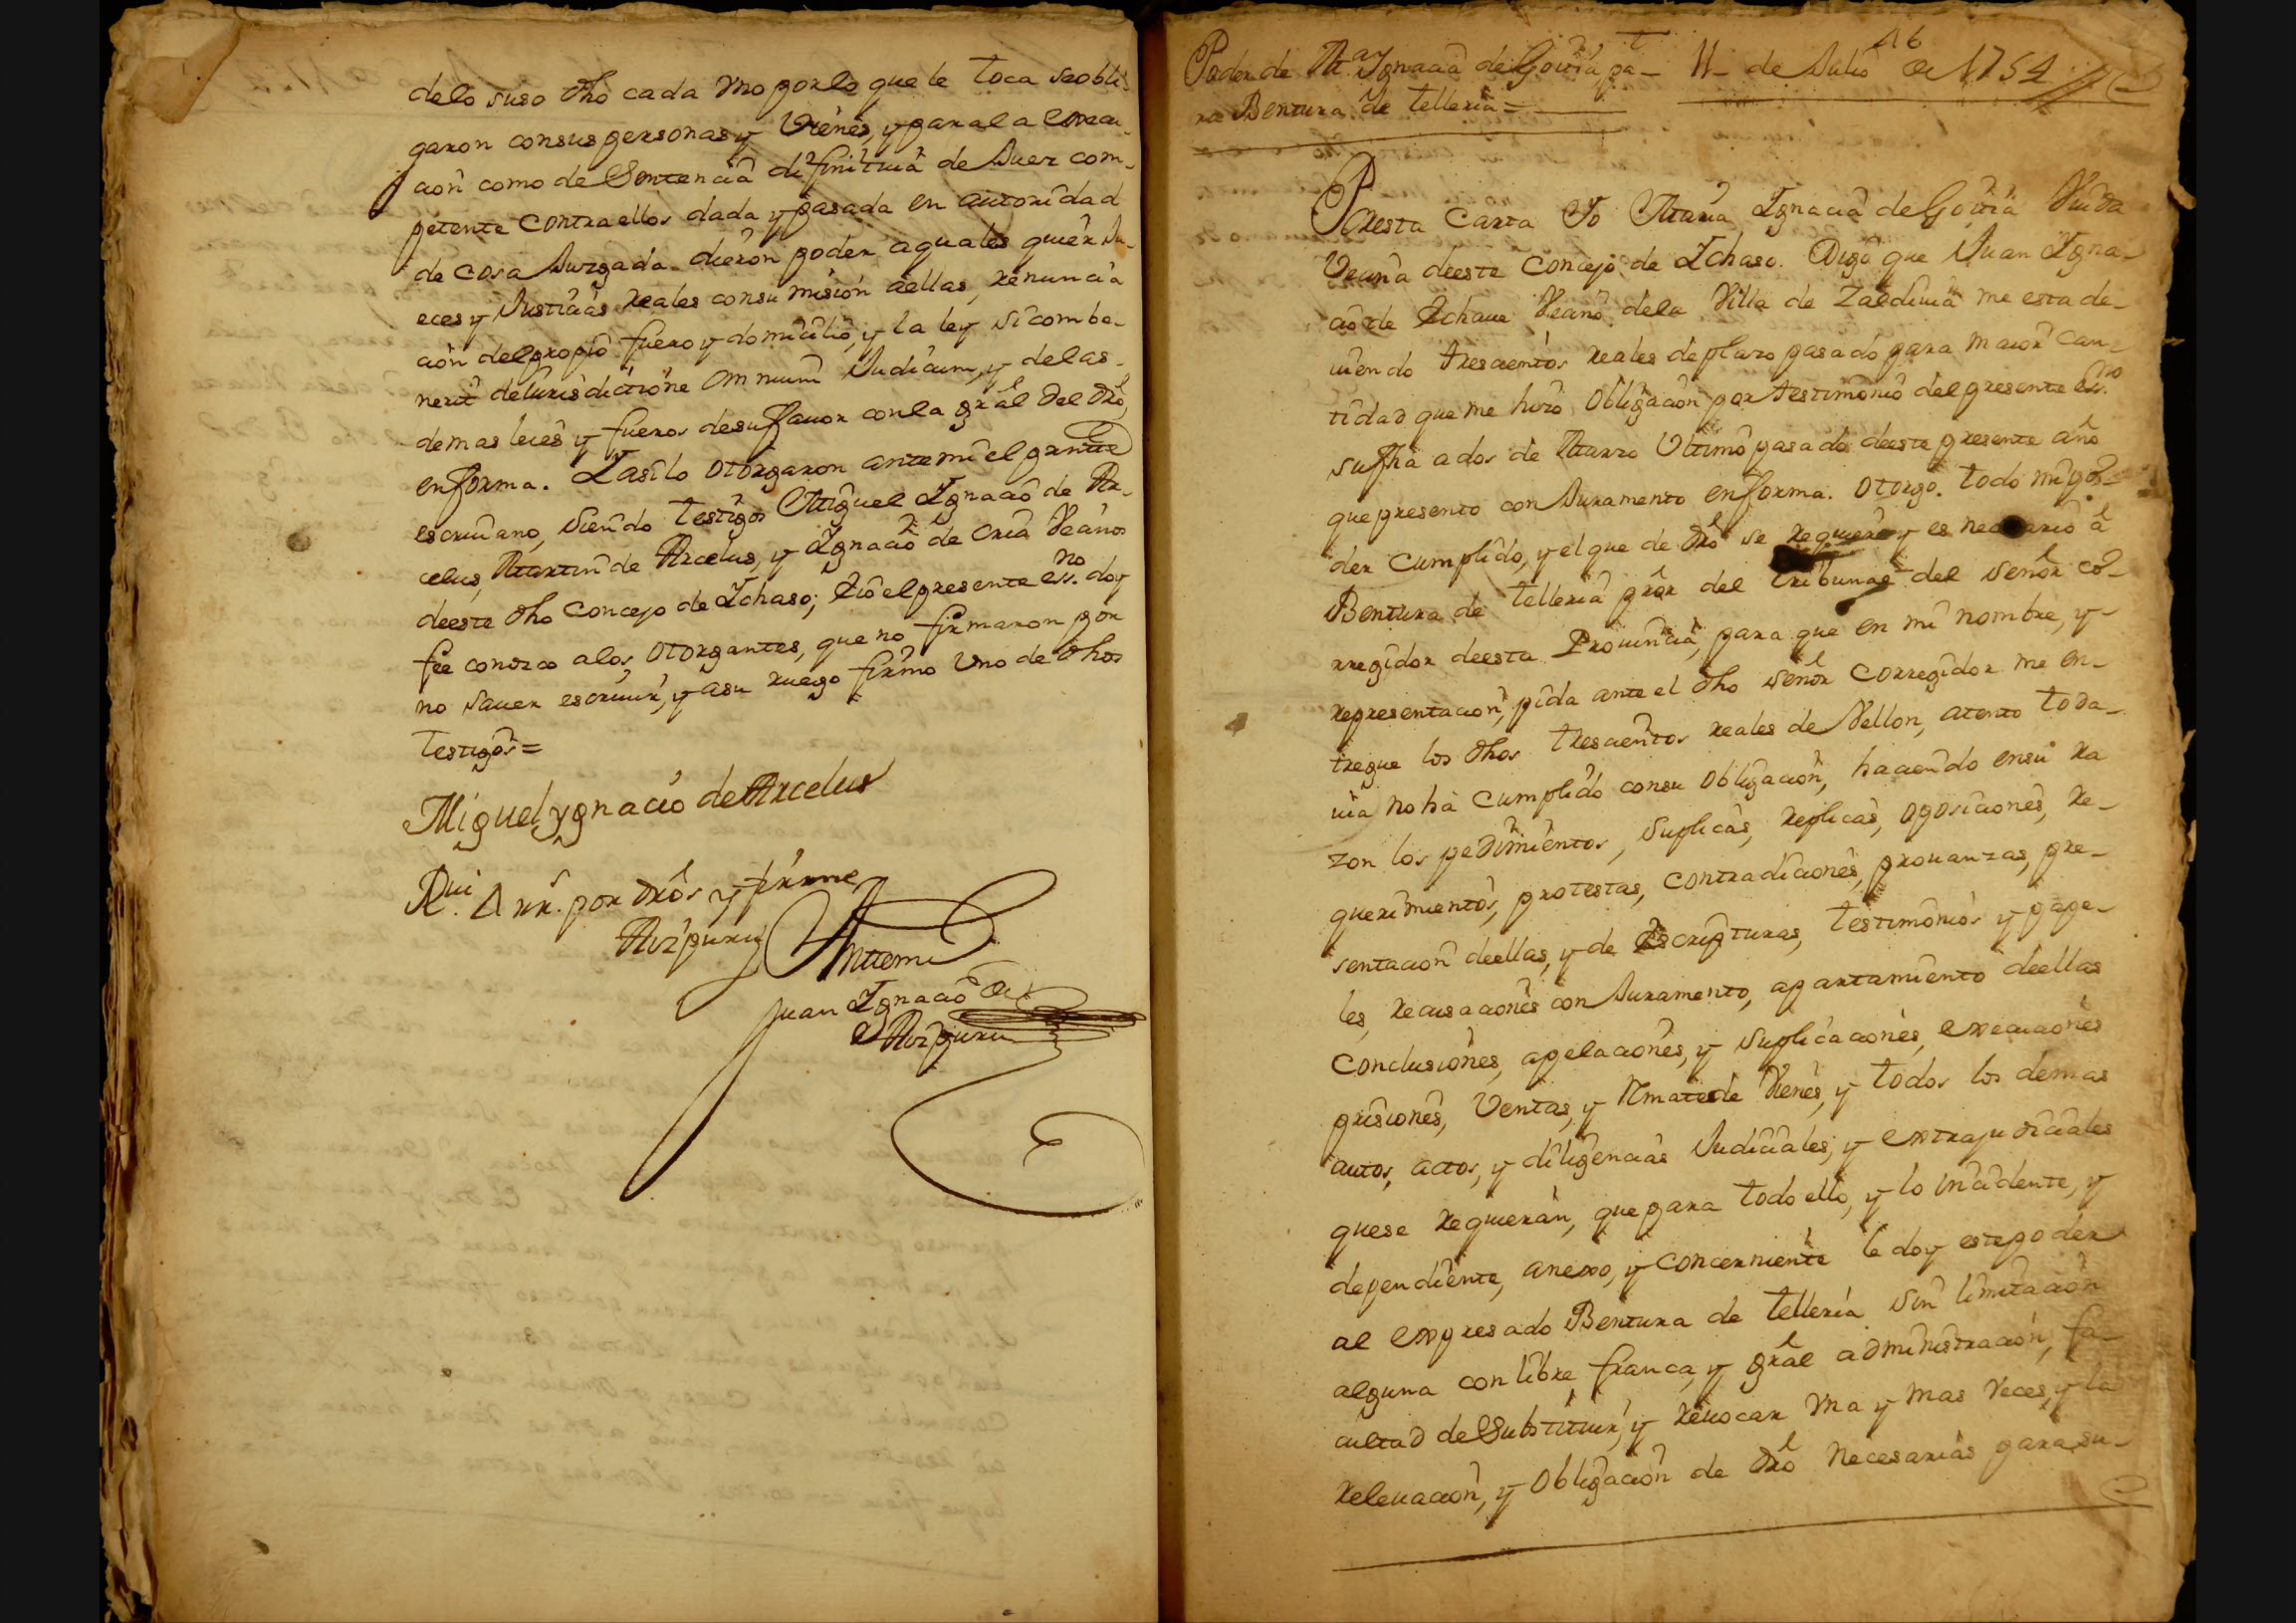 delo suso dho cada vno porlo que le toca se obli-
garon consus personas y Vienes, y parala execu-
cion como de Sentencia difinitiua de Juez com-
petente contra ellos dada y pasada en autoridad
de cosa Juzgada dieron poder a quales quier Ju-
eces y Justicias Reales consu mision aellas, renuncia
cion del propio fuero y domicilio, y la ley si combe-
nerit de Jurisdictione omnium Judicum, y delas
demas leies y fueros desu fauor conla gral del dro
en forma. Iasilo otorgaron antemi el prnte
escriuano, siendo testigos Miguel Ignacio de Ar-
celus, Martin de Arcelus, y Ignacio de Oria Vecinos
deeste dho Concejo de Ichaso; Eio el presente essno doy
fee conozco alos otorgantes, que no firmaron por
no sauer escriuir, y asu ruego firmo vno de dhos
testigos=
Miguel ygnacio de Arcelus
Rui 4 rrs. por dros y firme
Aizpuru Antemi
Juan Ignacio de
Aizpuru
46
Poder de Ma Ignacia de Goitia pa- 11- de Julio de 1754
ra Bentura de Telleria=
Por esta Carta Yo Maria Ignacia de Goitia Viuda
Vecina deeste Concejo de Ichaso. Digo que Juan Igna-
cio de Echaue Vecino dela Villa de Zaldiuia me esta de-
uiendo trescientos reales de plazo pasado para maior can-
tidad que me hizo Obligacion por testimonio del presente essno
su fha ados de Marzo Vltimo pasado deeste presente año
que presento con Juramento en forma. Otorgo. todo mi po-
der cumplido, y el que de dro se requiere y es necesario a
Bentura de Telleria pror del tribunal del señor co-
rregidor deesta Prouincia, para que en mi nombre, y
representacion, pida ante el dho señor Corregidor me en-
tregue los dhos trescientos reales de Vellon, atento toda-
uia no ha cumplido consu obligacion, haciendo ensu ra
zon los pedimientos, suplicas, replicas, oposiciones, re-
querimientos, protestas, contradiciones, prouanzas, pre-
sentacion deellas, y de Escripturas, testimonios y pape-
les, recusaciones con Juramento, apartamiento deellas
Conclusiones, apelaciones, y suplicaciones, execuciones
prisiones, Ventas, y Rmate de Vienes, y todos los demas
autos, actos, y diligencias Judiciales, y extrajudiciales
quese requieran, que para todo ello, y lo incidente, y
dependiente, anexo, y concerniente le doy este poder
al expresado Bentura de Telleria sin limitacion
alguna con libre franca, y gral administracion, fa-
cultad de Substituir, y reuocar vna y mas veces, y la
releuacion, y obligacion de dro necesarias para su-